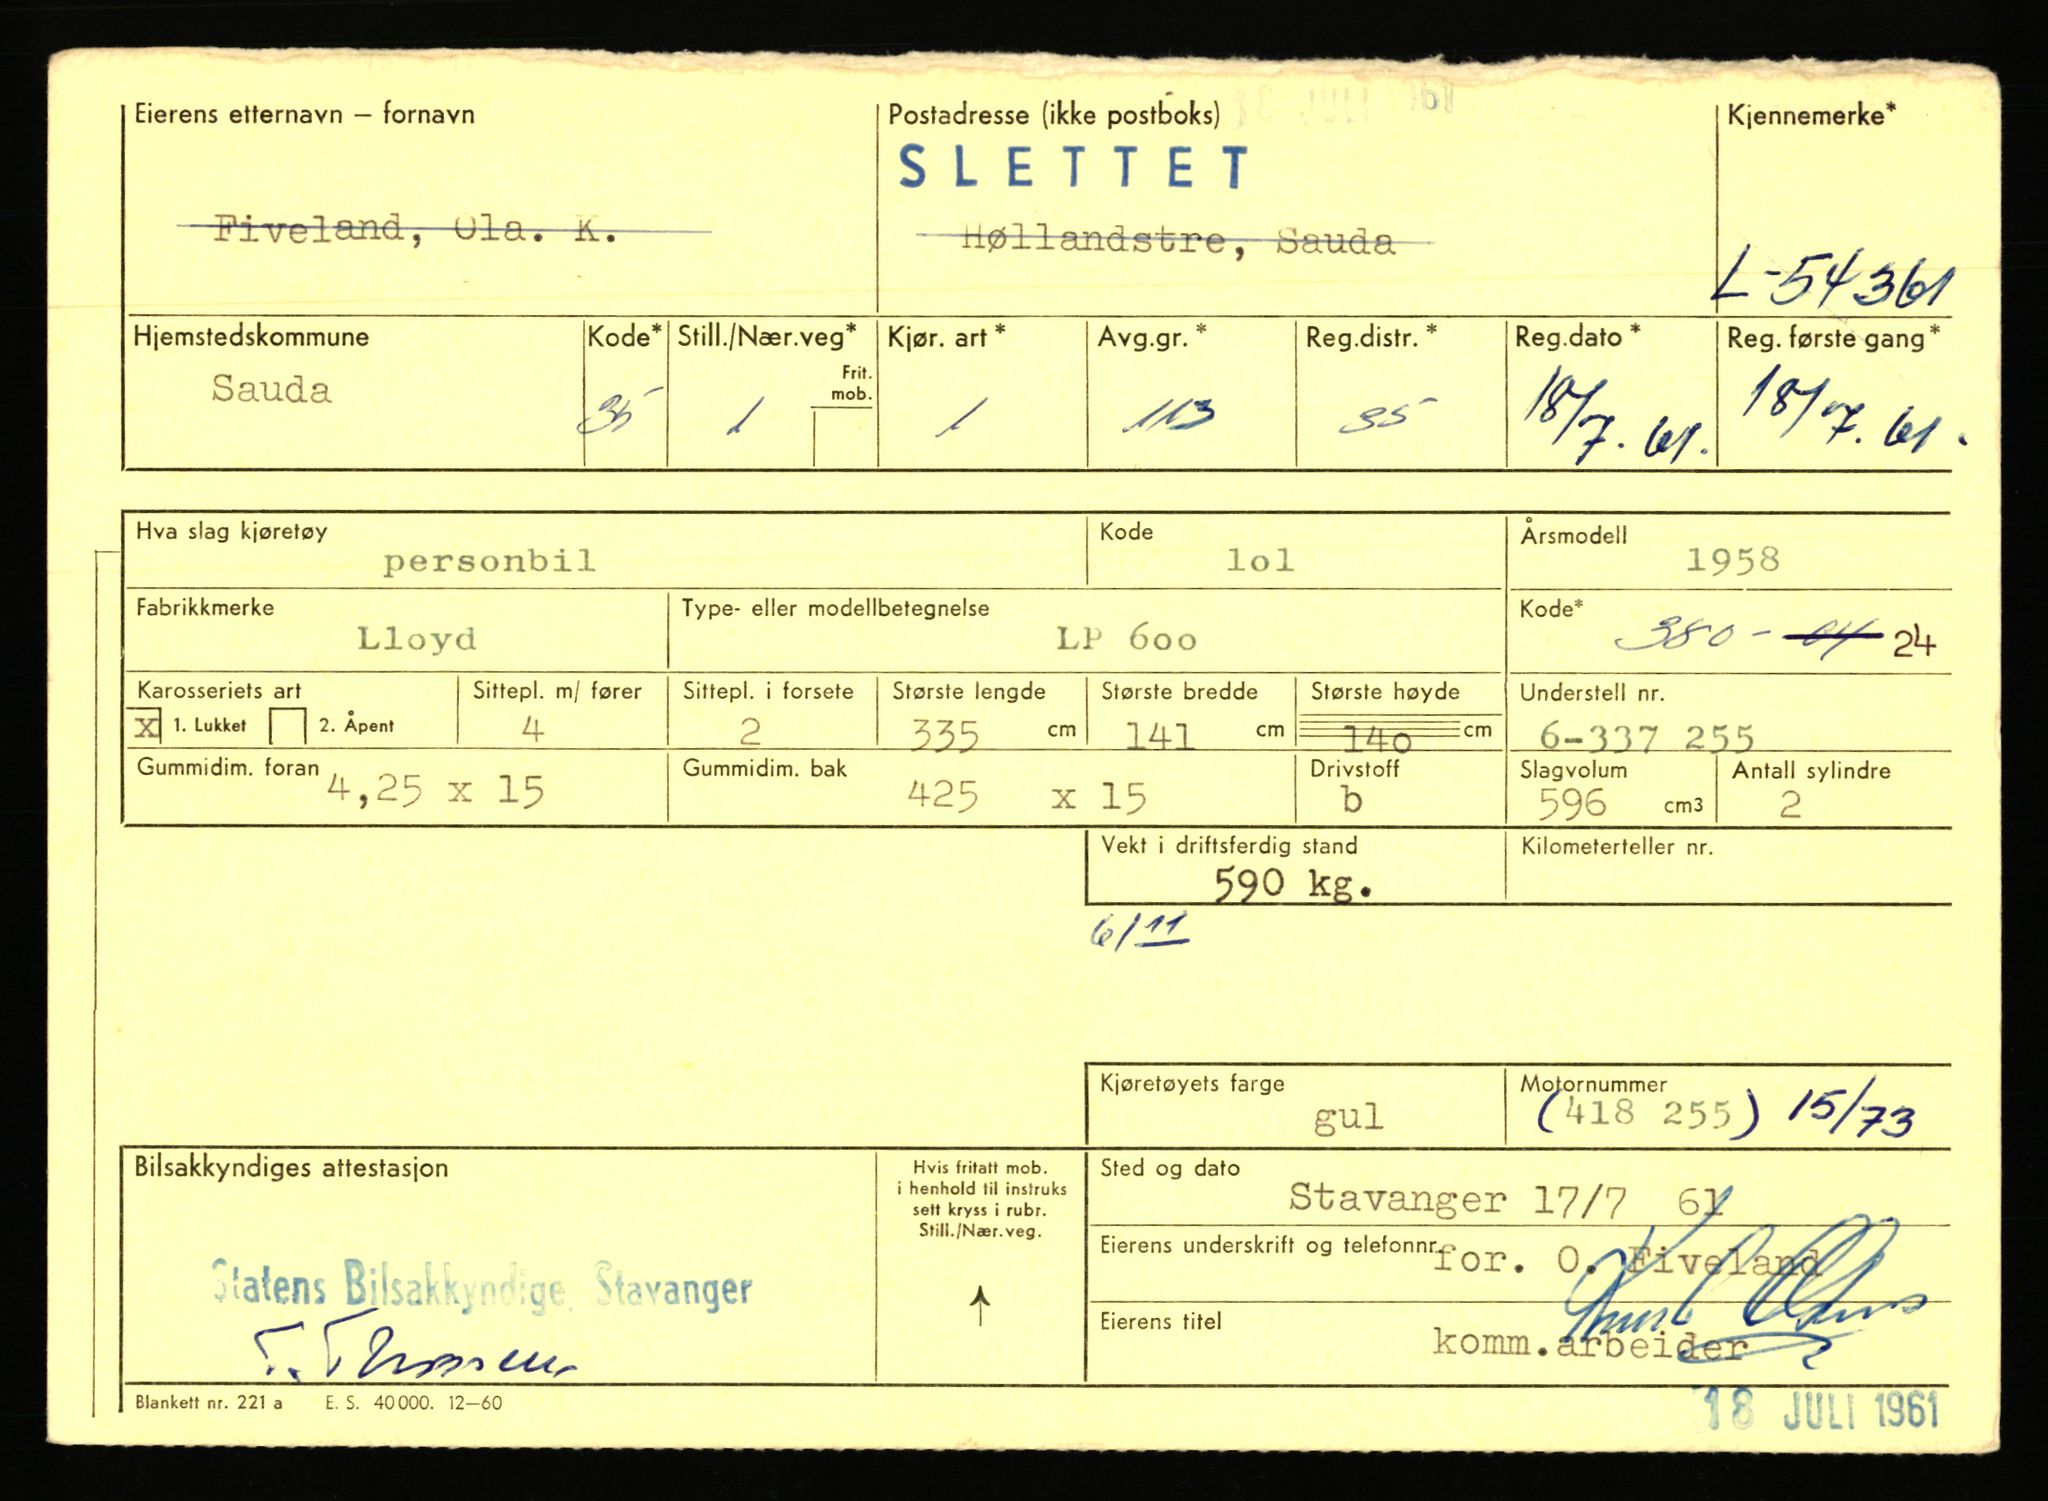 Eierens etternavn – fornavn
Postadresse (ikke postboks)
Kjennemerke*
SLETTET
Fiveland, Ola. K.
Høllandstre, Sauda
L-54361
Hjemstedskommune
Kode*
Still./Nær.veg*
Kjør. art *
Avg.gr. *
Reg.distr. *
Reg.dato *
Reg. første gang*
Frit.
mob.
Sauda
35
1
1
113
35
18/7. 61.
18/7. 61.
Hva slag kjøretøy
Kode
Årsmodell
personbil
lol
1958
Fabrikkmerke
Type- eller modellbetegnelse
Kode*
Lloyd
LP 6oo
380- 04 24
Karosseriets art
Sittepl. m/ fører
Sittepl. i forsete
Største lengde
Største bredde
Største høyde
Understell nr.
x 1. Lukket 2. Åpent
4
2
335 cm
141 cm
14o cm
6-337 255
Gummidim. foran
Gummidim. bak
Drivstoff
Slagvolum
Antall sylindre
4,25 x 15
425 x 15
b
596 cm3
2
Vekt i driftsferdig stand
Kilometerteller nr.
590 kg.
6/11
Kjøretøyets farge
Motornummer
gul
(418 255) 15/73
Bilsakkyndiges attestasjon
Hvis fritatt mob.
i henhold til instruks
sett kryss i rubr.
Still./Nær.veg.
Sted og dato
Stavanger 17/7 61
Eierens underskrift og telefonnr.
for. O. Fiveland
Statens Bilsakkyndige, Stavanger
Eierens titel
komm.arbeider
Blankett nr. 221 a E. S. 40000. 12–60
18 JULI 1961